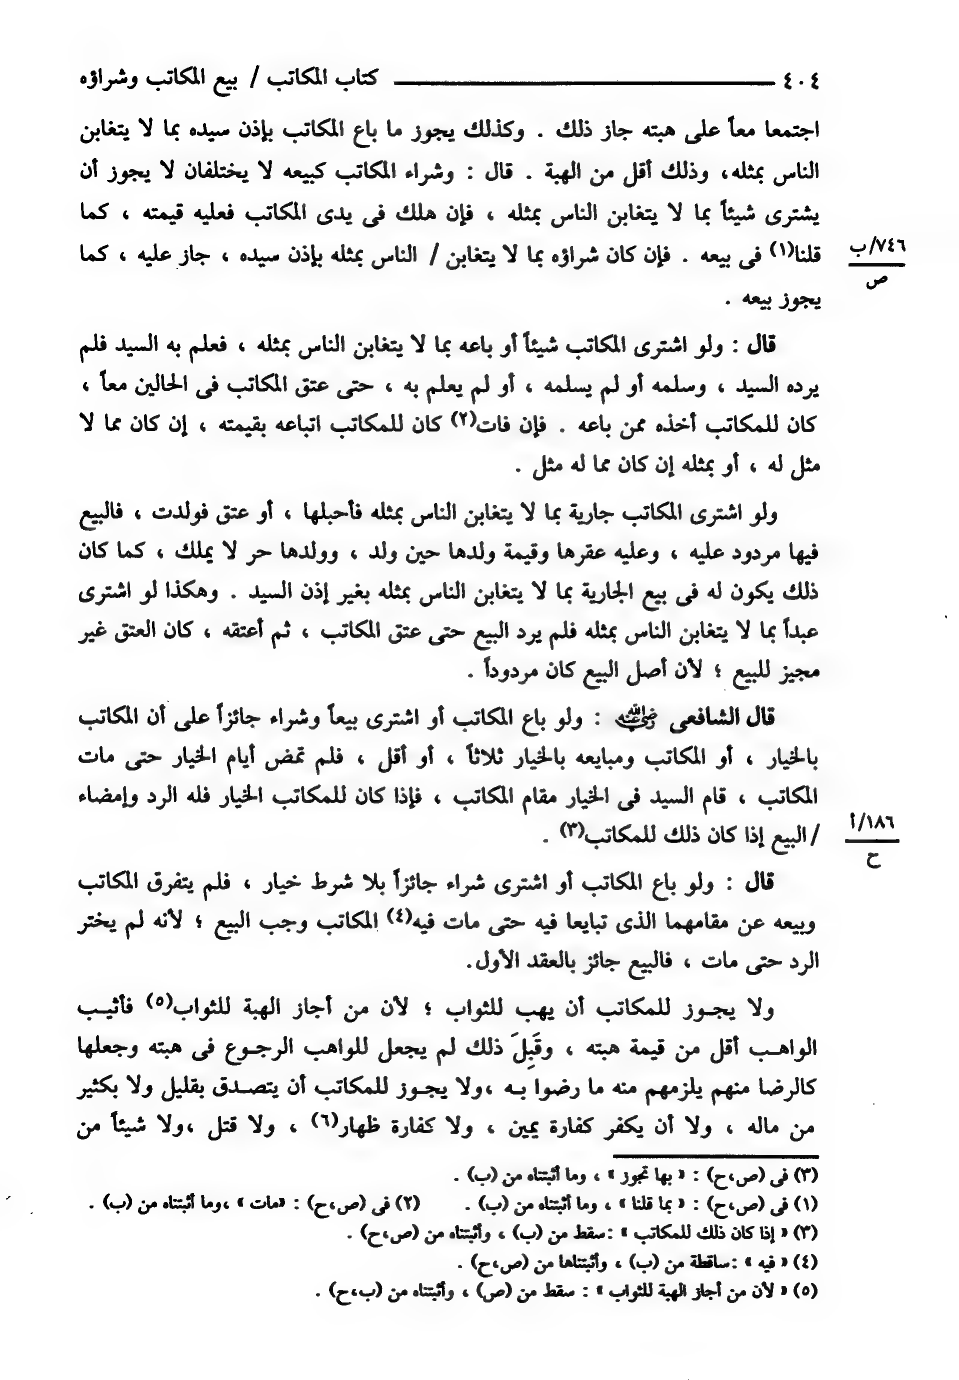 ٤٠٤ كتاب المكاتب / بيع المكاتب وشراؤه
اجتمعا معاً على هبته جاز ذلك . وكذلك يجوز ما باع المكاتب بإذن سيده بما لا يتغابن
الناس بمثله، وذلك أقل من الهبة . قال : وشراء المكاتب كبيعه لا يختلفان لا يجوز أن
يشترى شيئاً بما لا يتغابن الناس بمثله ، فإن هلك فى يدى المكاتب فعليه قيمته ، كما
قلنا(١) فى بيعه . فإن كان شراؤه بما لا يتغابن / الناس بمثله بإذن سيده ، جاز عليه ، كما
٧٤٦/ب
ص
يجوز بيعه .
قال : ولو اشترى المكاتب شيئاً أو باعه بما لا يتغابن الناس بمثله ، فعلم به السيد فلم
يرده السيد ، وسلمه أو لم يسلمه ، أو لم يعلم به ، حتى عتق المكاتب فى الحالين معاً ،
كان للمكاتب أخذه ممن باعه . فإن فات(٢) كان للمكاتب اتباعه بقيمته ، إن كان مما لا
مثل له ، أو بمثله إن كان مما له مثل .
ولو اشترى المكاتب جارية بما لا يتغابن الناس بمثله فأحبلها ، أو عتق فولدت ، فالبيع
فيها مردود عليه ، وعليه عقرها وقيمة ولدها حين ولد ، وولدها حر لا يملك ، كما كان
ذلك يكون له فى بيع الجارية بما لا يتغابن الناس بمثله بغير إذن السيد . وهكذا لو اشترى
عبداً بما لا يتغابن الناس بمثله فلم يرد البيع حتى عتق المكاتب ، ثم أعتقه ، كان العتق غير
مجيز للبيع ؛ لأن أصل البيع كان مردوداً .
قال الشافعى رضي الله عنه : ولو باع المكاتب أو اشترى بيعاً وشراء جائزاً على أن المكاتب
بالخيار ، أو المكاتب ومبايعه بالخيار ثلاثاً ، أو أقل ، فلم تمض أيام الخيار حتى مات
المكاتب ، قام السيد فى الخيار مقام المكاتب ، فإذا كان للمكاتب الخيار فله الرد وإمضاء
/ البيع إذا كان ذلك للمكاتب(٣) .
١٨٦/أ
ح
قال : ولو باع المكاتب أو اشترى شراء جائزاً بلا شرط خيار ، فلم يتفرق المكاتب
وبيعه عن مقامهما الذى تبايعا فيه حتى مات فيه(٤) المكاتب وجب البيع ؛ لأنه لم يختر
الرد حتى مات ، فالبيع جائز بالعقد الأول.
ولا يجوز للمكاتب أن يهب للثواب ؛ لأن من أجاز الهبة للثواب(٥) فأثيب
الواهب أقل من قيمة هبته ، وقَبِلَ ذلك لم يجعل للواهب الرجوع فى هبته وجعلها
كالرضا منهم يلزمهم منه ما رضوا به ،ولا يجوز للمكاتب أن يتصدق بقليل ولا بكثير
من ماله ، ولا أن يكفر كفارة يمين ، ولا كفارة ظهار(٦) ، ولا قتل ،ولا شيئاً من
(٣) فى (ص،ح) : « بها تجوز » ، وما أثبتناه من (ب) .
(١) فى (ص،ح) : « بما قلنا » ، وما أثبتناه من (ب) . (٢) فى (ص،ح) : «مات» ،وما أثبتناه من (ب) .
(٣) « إذا كان ذلك للمكاتب » :سقط من (ب) ، وأثبتناه من (ص،ح) .
(٤) « فيه » :ساقطة من (ب) ، وأثبتناها من (ص،ح) .
(٥) « لأن من أجاز الهبة للثواب » : سقط من (ص) ، وأثبتناه من (ب،ح) .